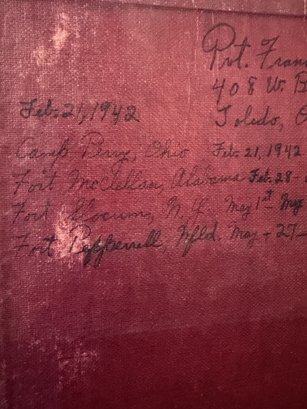 Pvt. Fran
408 W. B
Feb. 21, 1942
Toledo, O
Camp Perry, Ohio Feb. 21, 1942
Fort McClellan, Alabama Feb. 28-
Fort Slocum, N.Y. May 1st - May
Fort Pepperrell, Nfld. May - 27-